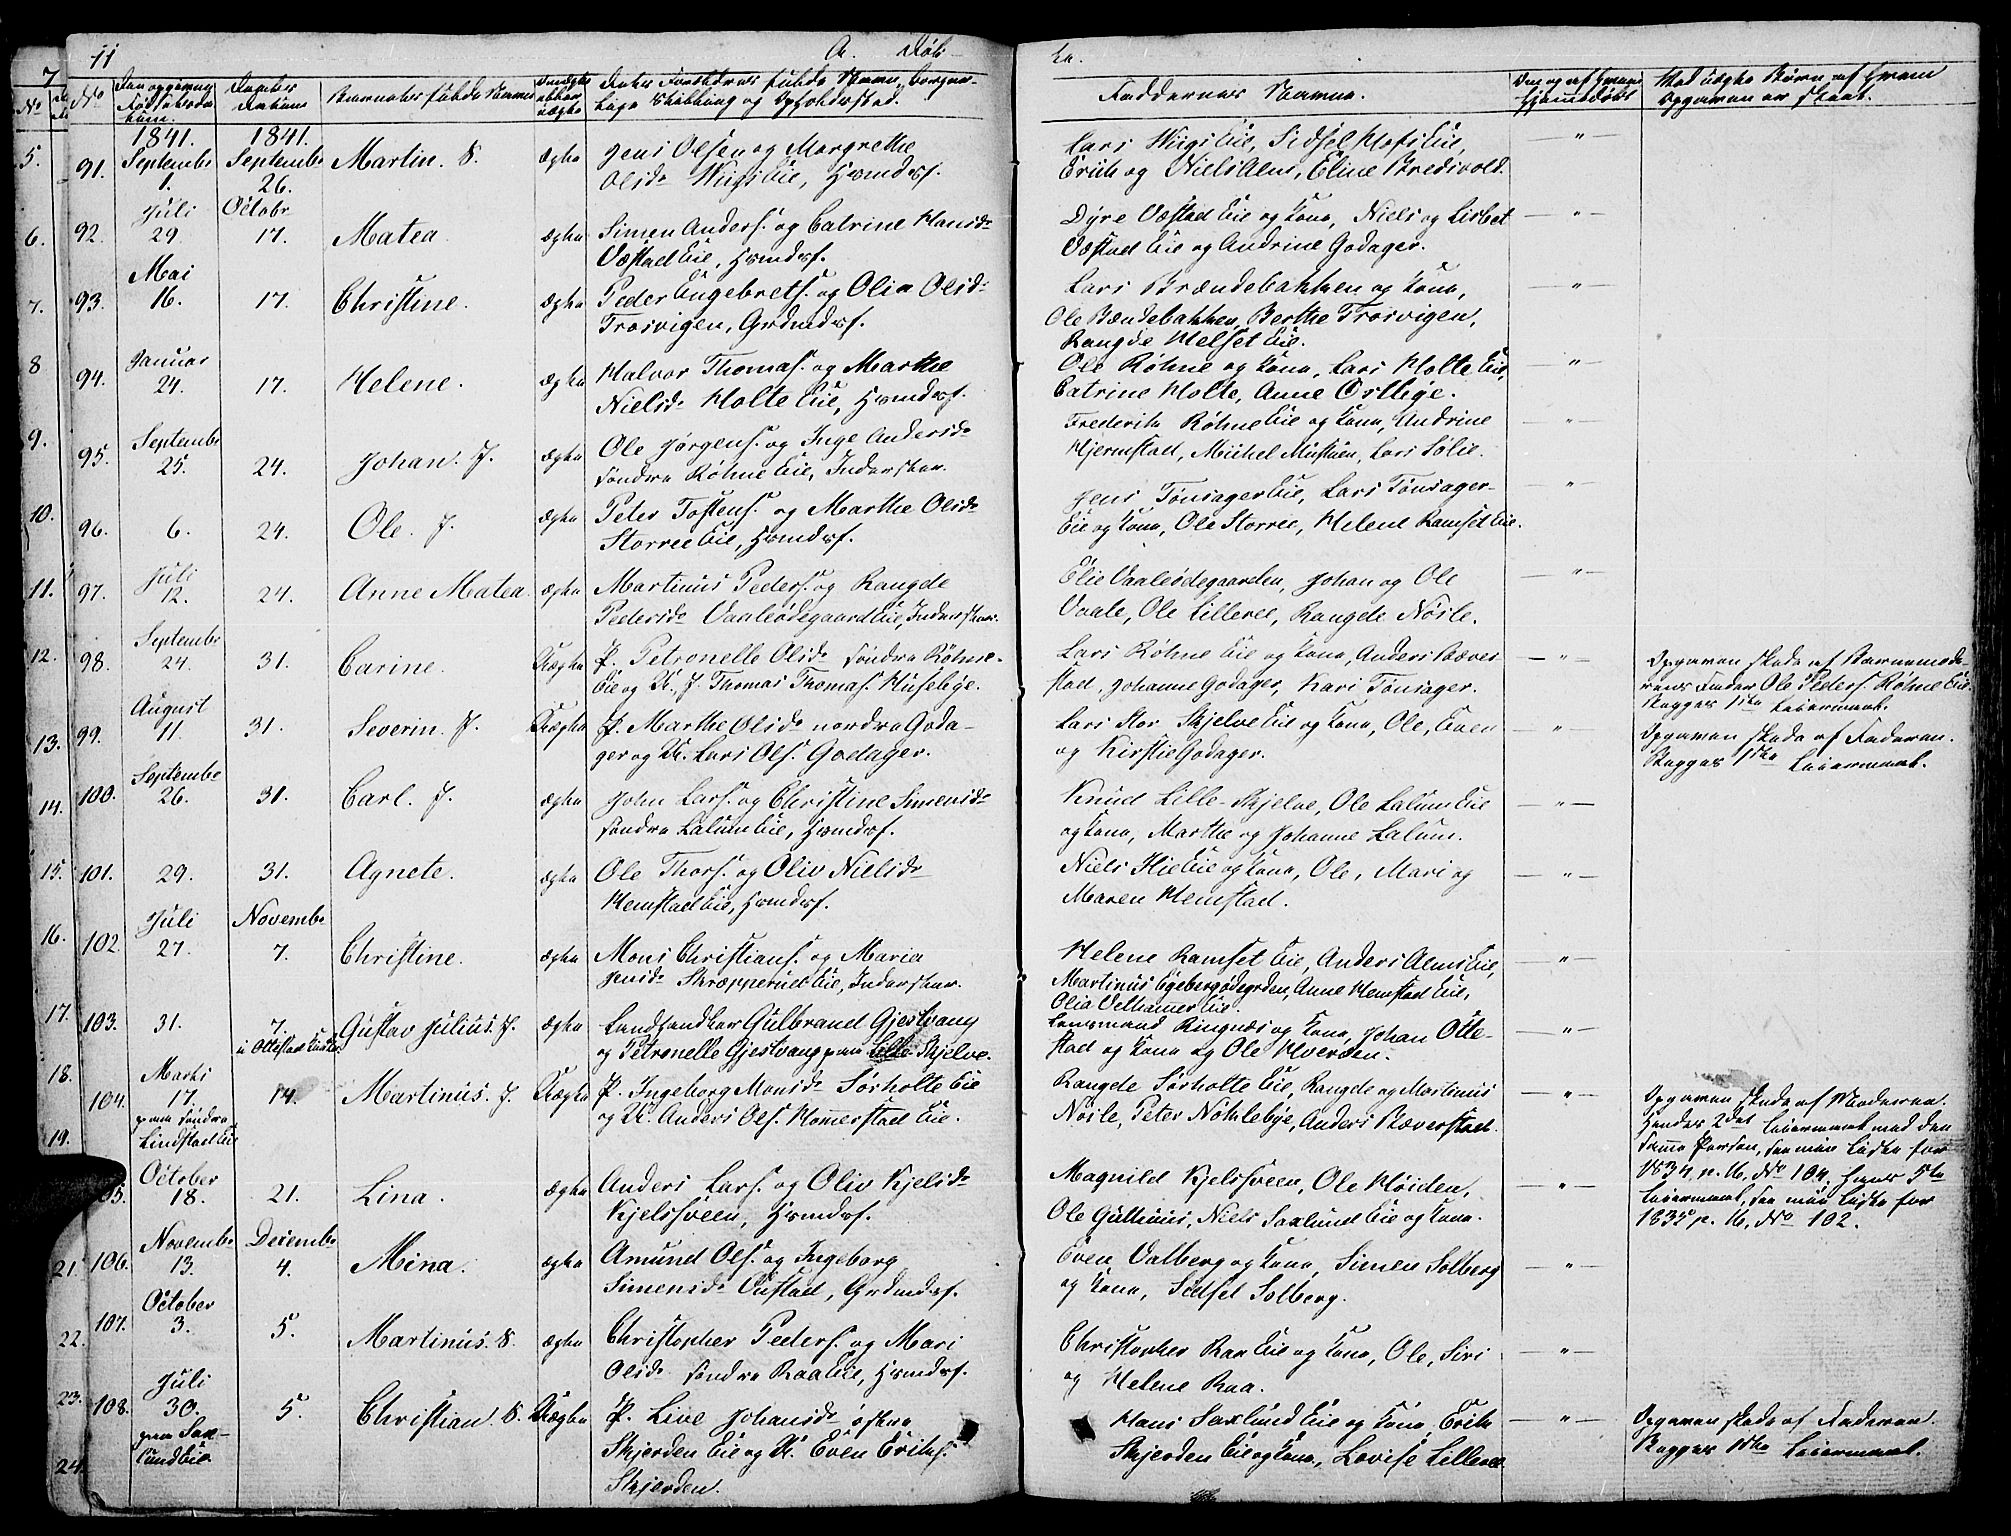 11 A. Døb-
91. 1841. Septembr 1. 1841. Septembr 26. Martin. S. ægte Jens Olsen og Margrethe
Olsdr Wiigs Eie, Huusmdsf.
Lars Wiigs Eie, Sidsel Hofs Eie,
Erik og Niels Alm, Eline Bredivold.
92. Juli 29 Octobr 17. Matea ægte Simen Anders. og Catrine Hansdr
Væstad Eie, Huusmdsf.
Dyre Væstad Eie og Kone, Niels og Lisbet
Væstad Eie og Andrine Godager.
93. Mai 16. 17. Christine. ægte Peder Engebrets. og Olia Olsdr
Trosvigen, Grdmdsf.
Lars Brændebakken og Kone,
Ole Bændebakken, Berthe Trosvigen,
Rangde Helset Eie.
94. Januar 24. 17. Helene. ægte Halvor Thomas. og Marthe
Nielsdr Holte Eie, Huusmdsf.
Ole Røhne og Kone, Lars Holte Eie,
Catrine Holte, Anne Østlige.
95. Septembr 25. 24. Johan. J. ægte Ole Jørgens. og Inge Andersdr
søndre Røhne Eie, Inderster.
Frederik Røhne Eie og Kone, Andrine
Hjermstad, Michel Mustuen, Lars Sølie.
96. 6. 24. Ole. J. ægte Peter Tostens. og Marthe Olsdr
Storree Eie, Huusmdsf.
Jens Tønsager Eie, Lars Tønsager-
Eie og Kone, Ole Storree, Helene Ramset Eie.
97. Juli 12. 24. Anne Matea. ægte Martinus Peders. og Rangde
Pedersdr Vaaleødegaard Eie, Inderster.
Elie Vaaleødegaarden, Johan og Ole
Vaale, Ole Lilleree, Rangde Nøsle.
98. Septembr 24. 31. Carine. Uægte P. Petronelle Olsdr søndre Røhne-
Eie og U. J. Thomas Thomas. Huselige.
Lars Røhne Eie og Kone, Anders Bæver-
stad, Johanne Godager, Kari Tønsager.
Opgaven skede af Barnemode-
rens Fader Ole Peders. Røhne Eie.
Begges 1ste Leiermaal.
99. August 11. 31. Severin. J. Uægte P. Marthe Olsdr nordre Goda-
ger og U. Lars Ols. Godager.
Lars Stor Skjelve Eie og Kone, Ole, Even
og Kirstie Godager.
Opgaven skede af Faderen.
Begges 1ste Leiermaal.
100. Septembr 26. 31. Carl. J. ægte John Lars. og Christine Simensdr
søndre Lalum Eie, Huusmdsf.
Knud Lille-Skjelve, Ole Lalum Eie
og Kone, Marthe og Johanne Lalum.
101. 29. 31. Agnete. ægte Ole Thors. og Oliv Nielsdr
Hemstad Eie, Huusmdsf.
Niels Hie Eie og Kone, Ole, Mari og
Maren Hemstad.
102. Juli 27. Novembr 7. Christine. ægte Mons Christians. og Maria
Jensdr Skræpperud Eie, Inderster.
Helene Ramset Eie, Anders Alms Eie,
Martinus Egebergødegrden, Anne Hemstad Eie,
Olia Velhamer Eie.
103. 31. 7. i Ottestad Kirke Gustav Julius. J. ægte Landhandler Gulbrand Gjestvang
og Petronelle Gjestvang paa Lille-Skjelve.
Lensmand Ringnæs og Kone, Johan Otte-
stad og Kone og Ole Hverven.
104. Marts 17. paa søndre Lindstad Eie 14. Martinus. J. Uægte P. Ingeborg Monsdr Sørholte Eie
og U. Anders Ols. Homerstad Eie.
Rangde Sørholte Eie, Rangde og Martinus
Nøsle, Peter Nøkleby, Anders Bæverstad.
Opgaven skede af Moderen.
Hendes 2det Leiermaal med den
samme Person, see min Liste for
1834 p. 16, No 104. Hans 5te
Leiermaal, see min Liste for
1835 p. 16, No 102.
105. October 18. 21. Lina. ægte Anders Lars. og Oliv Kjelsdr
Kjelsveen, Huusmdsf.
Magnild Kjelsveen, Ole Høiden,
Ole Gullhuus, Niels Saxlund Eie og Kone.
106. Novembr 13. Decembr 4. Mina. ægte Amund Ols. og Ingeborg
Simensdr Oustad, Grdmdsf.
Even Valberg og Kone, Simen Solberg
og Kone, Sidsel Solberg.
107. October 3. 5. Martinus. S. ægte Christopher Peders. og Mari
Olsdr søndre Raa Eie, Huusmdsf.
Christopher Raa Eie og Kone, Ole, Siri
og Helene Raa.
108. Juli 30. paa Sax-lund Eie 5. Christian. S. Uægte P. Live Johansdr østre
Skjerden Eie og U. Even Eriks.
Skjerden.
Hans Saxlund Eie og Kone, Erik
Skjerden Eie og Kone, Lovise Lilleree
Opgaven skede af Faderen.
Begges 1ste Leiermaal.